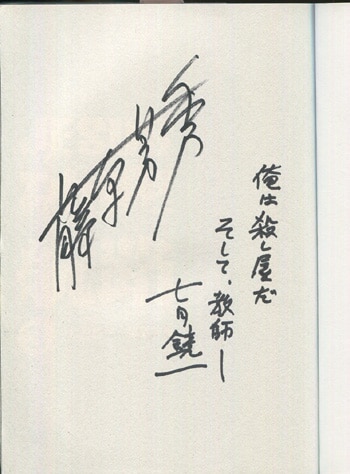 俺は殺し屋だ
そして、教師―
七月鏡一
藤原芳秀